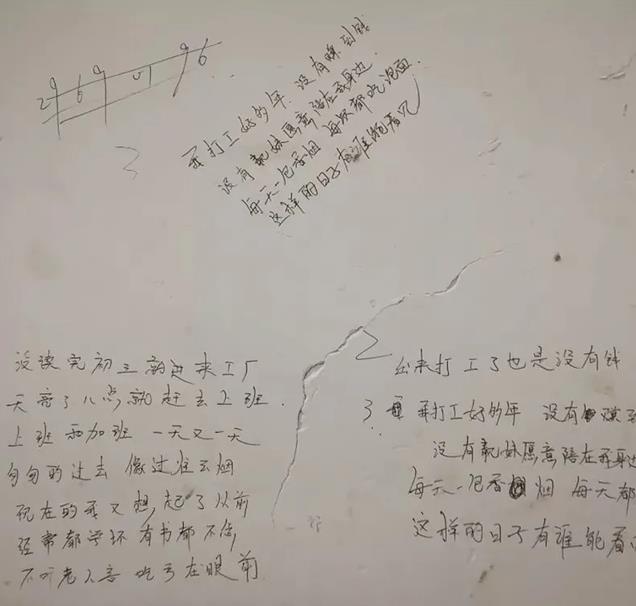 2969 6
我打工好多年 没有赚到钱
没有靓妹愿意陪在我身边
每天一包香烟 每次都吃泡面
这样的日子有谁能看见
没读完初三就进来工厂
天亮了八点就赶去上班
上班和加班 一天又一天
匆匆的过去 像过往云烟
现在的我又想起了从前
经常都学坏 有书都不念
不听老人言 吃亏在眼前
2 出来打工了也是没有钱
3 我打工好多年 没有赚
没有靓妹愿意陪在我身边
每天一包香烟 每天都
这样的日子有谁能看